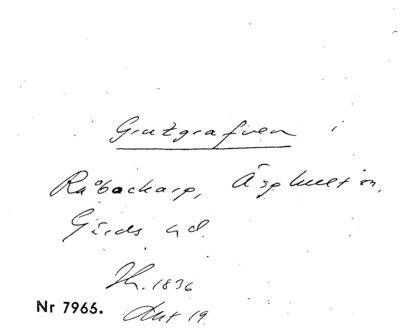 Grutzgrafven i
Råbockarp, Äsphult sn,
Gärds hd.
Th. 1836
Nr 7966. Akt 19